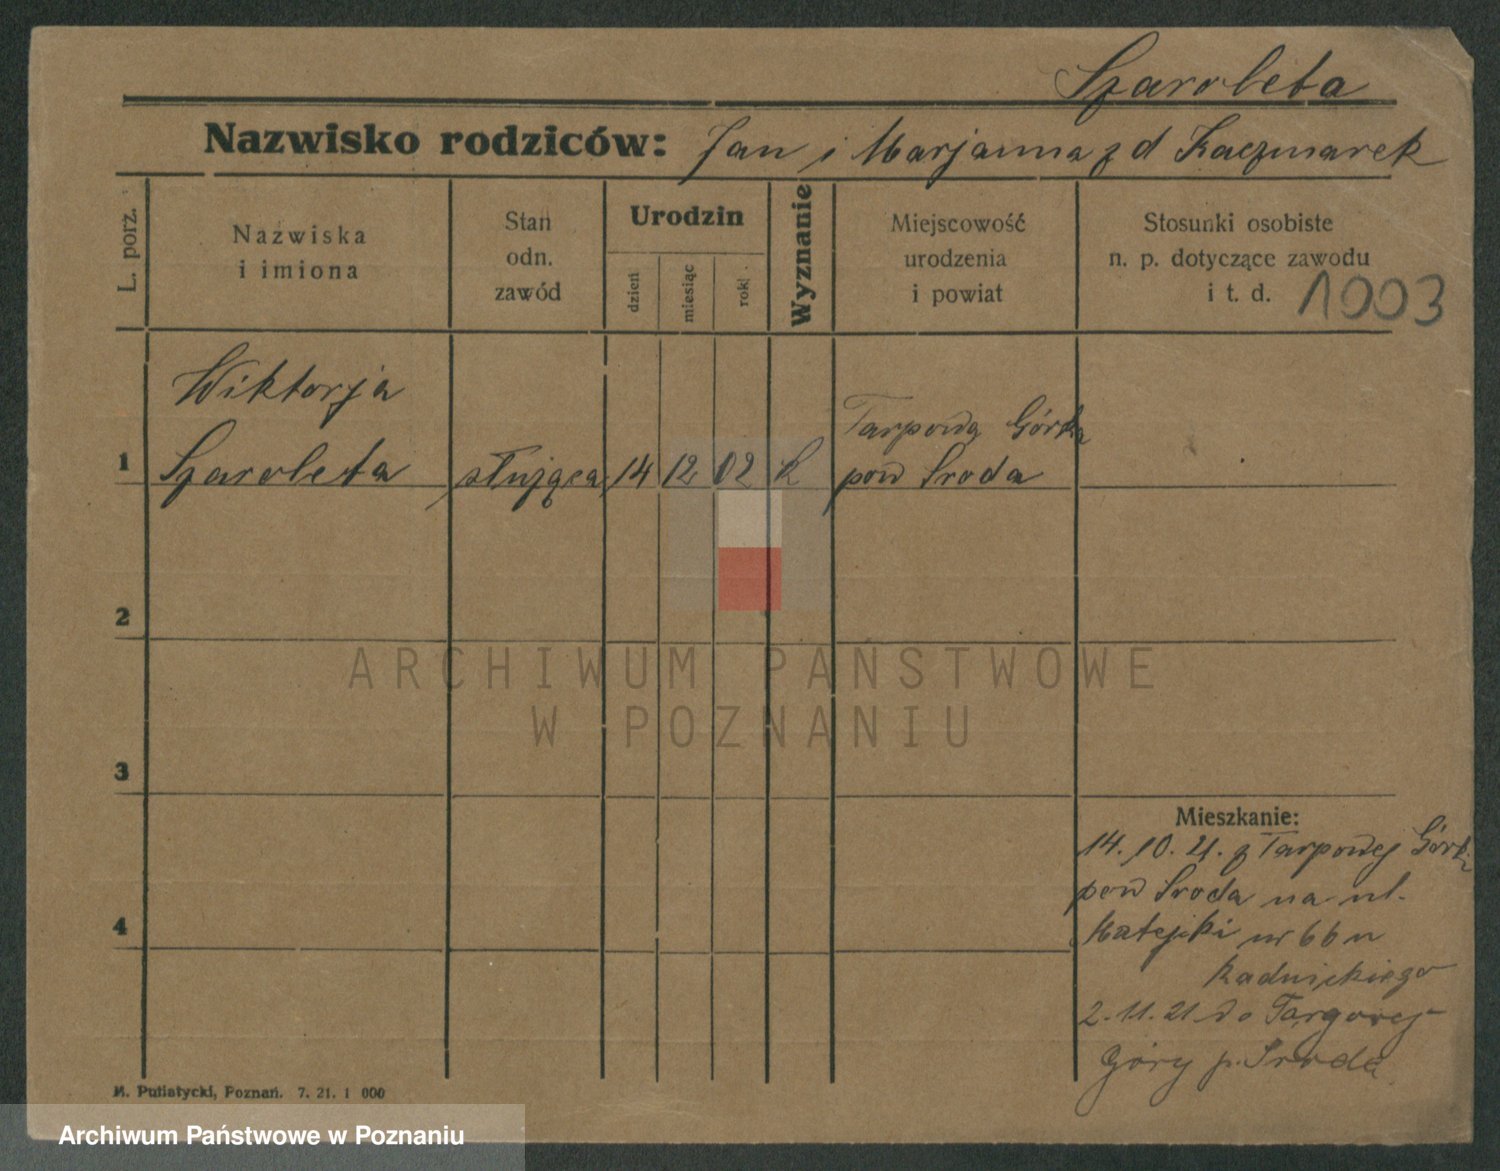 Szaroleta
Nazwisko rodziców: Jan i Marjanna z d Kaczmarek
L. porz.
Nazwiska
i imiona
Stan
odn.
zawód
Urodzin
dzień
miesiąc
rok
Wyznanie
Miejscowość
urodzenia
i powiat
Stosunki osobiste
n. p. dotyczące zawodu
i t. d.
1003
Wiktorja
1 Szaroleta służąca 14 12 02 k
Tarpową Górka
pow Sroda
2
ARCHIWUM PAŃSTWOWE
W POZNANIU
3
Mieszkanie:
14. 10. 21. z Tarpowej Górki
pow Sroda na ul.
4
Matejki nr 66 u
2. 11. 21 do Targowej
Góry p. Sroda
M. Putiatycki, Poznań. 7. 21. 1 000
Archiwum Państwowe w Poznaniu